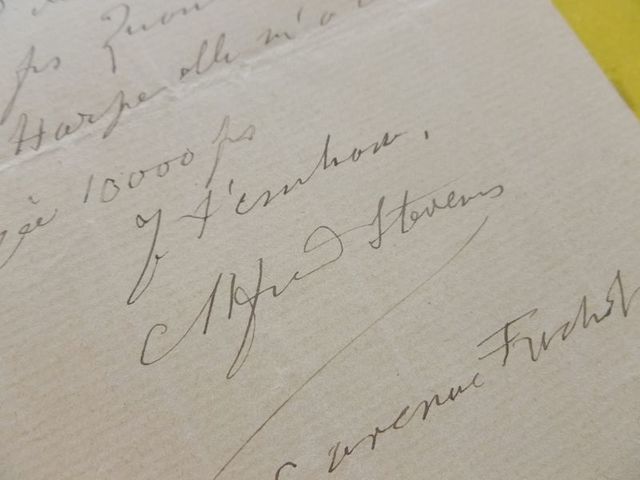 frs Quan
Harpe elle m'a
ée 10000 frs
Je t'embrasse.
Alfred Stevens
avenue Frochot